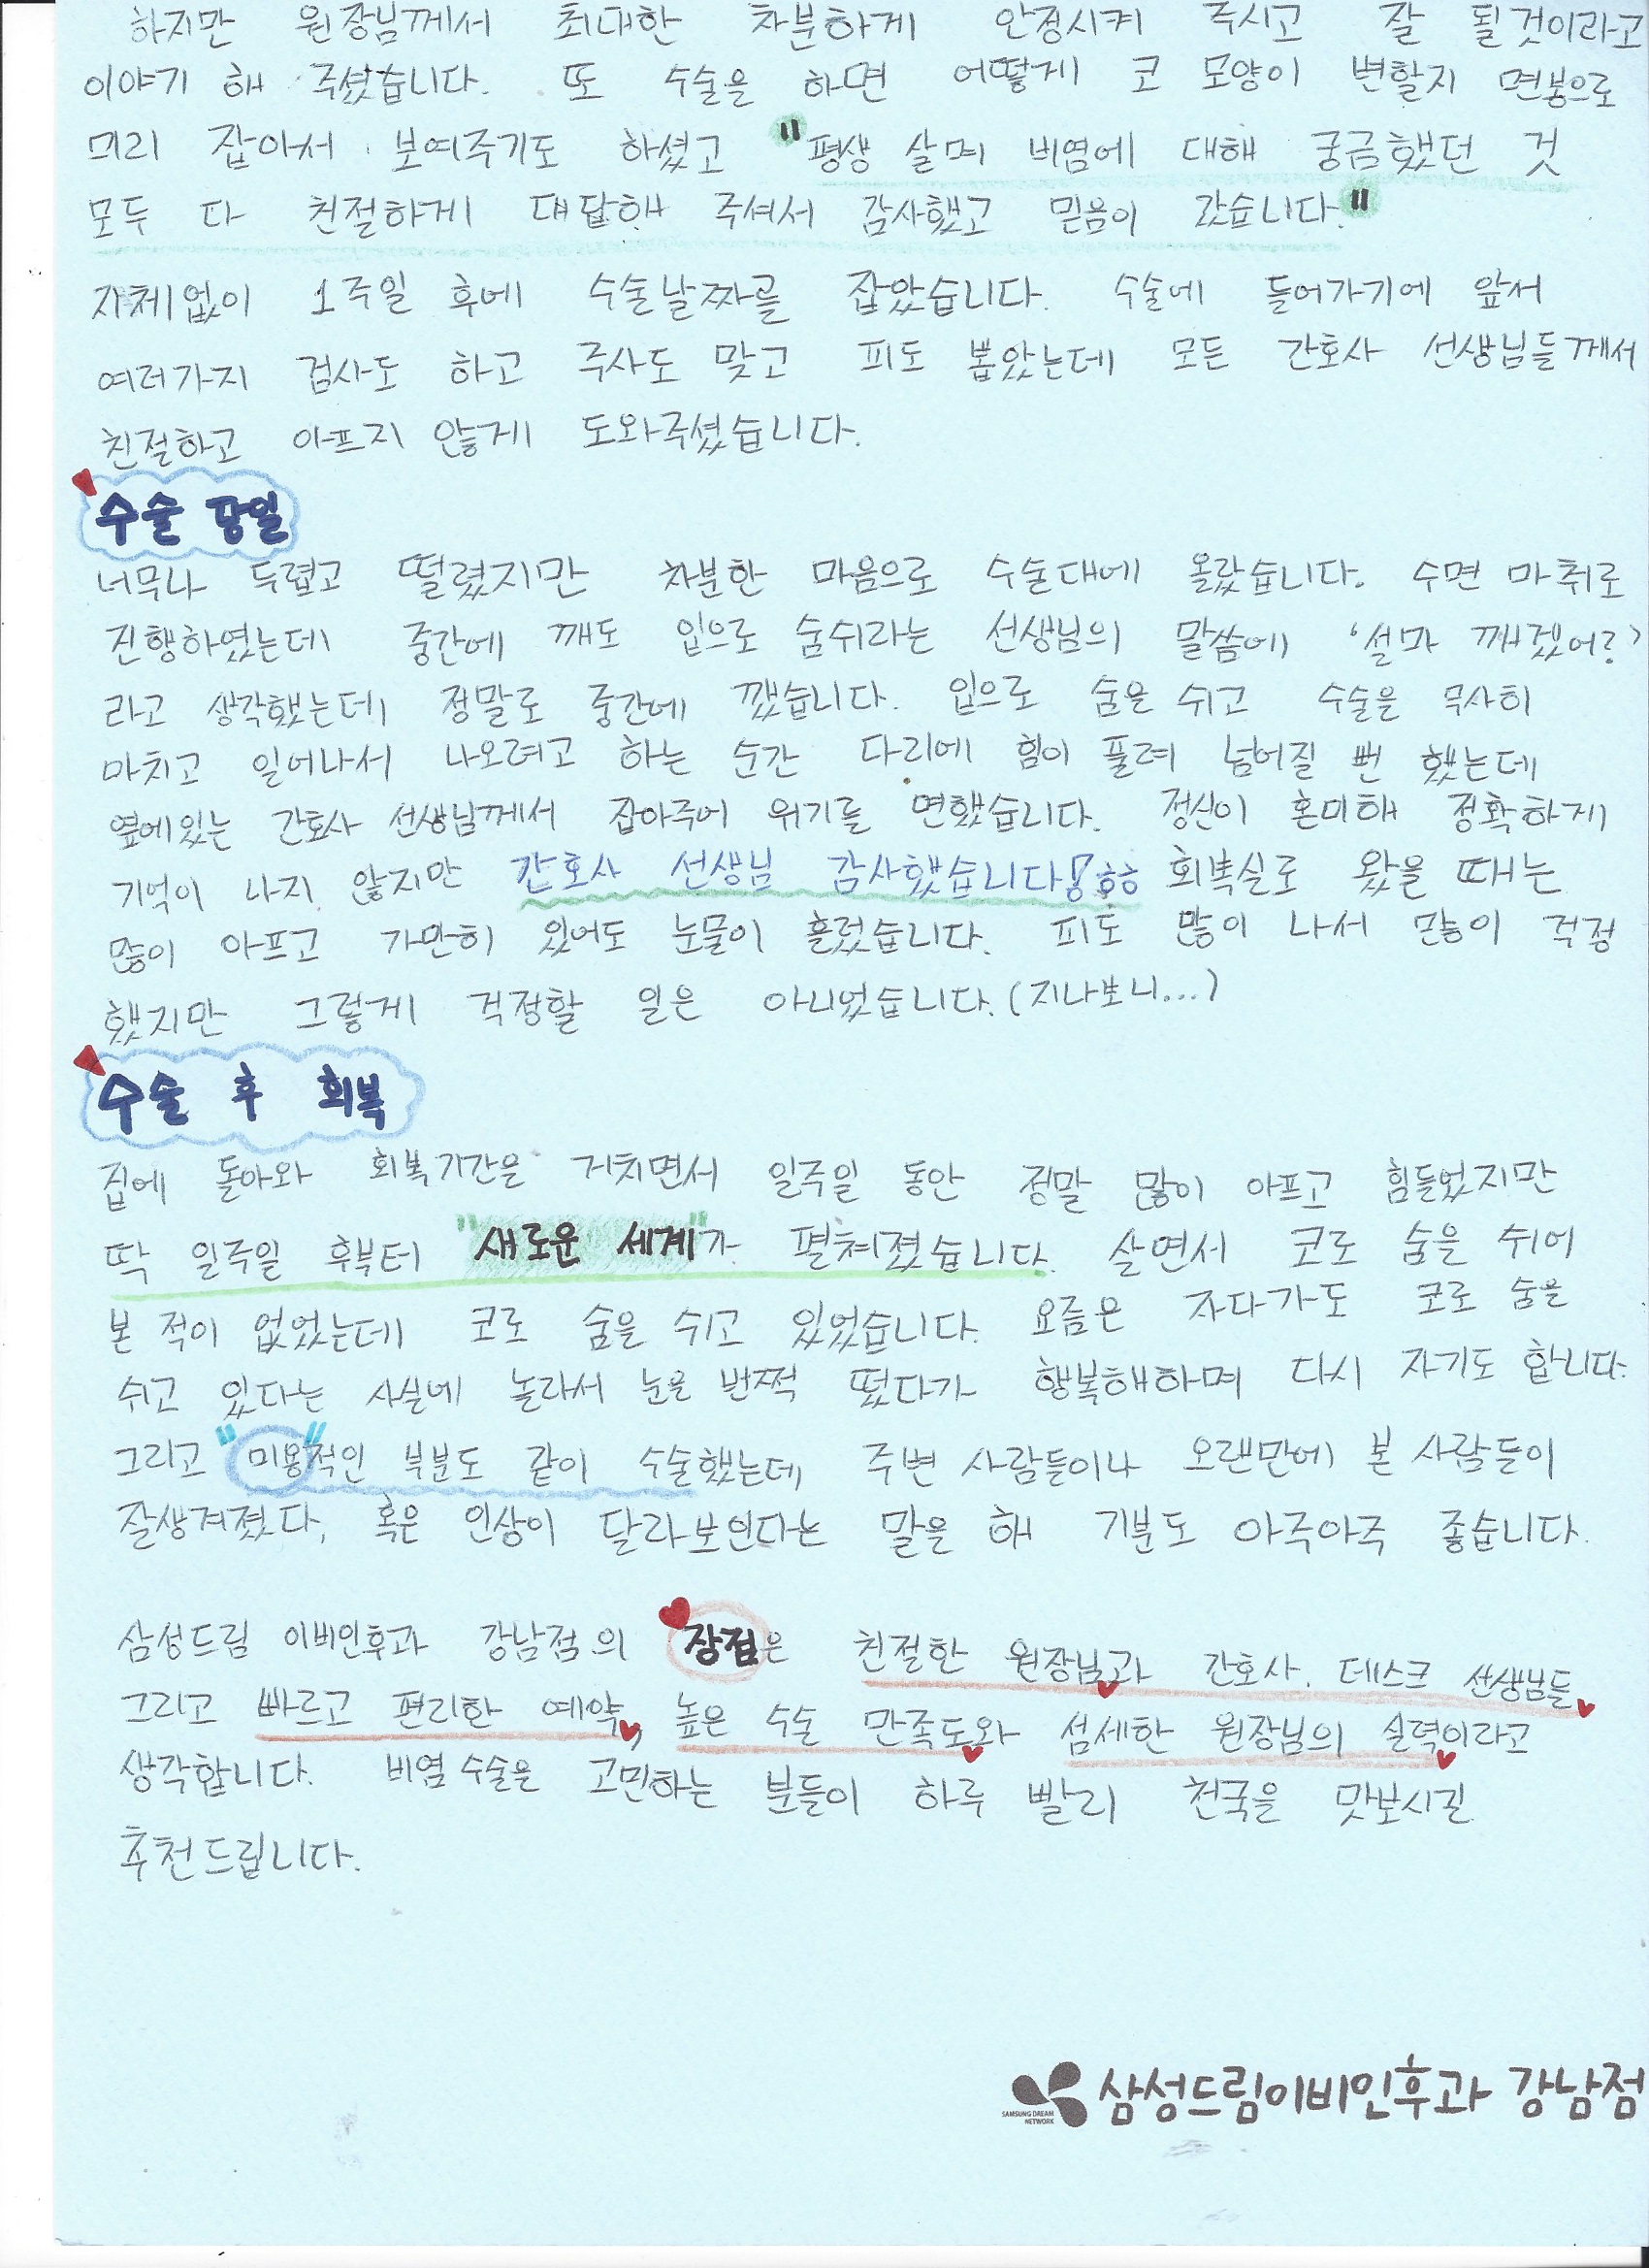 하지만 원장님께서 최대한 차분하게 안정시켜 주시고 잘 될것이라고
이야기 해 주셨습니다. 또 수술을 하면 어떻게 코 모양이 변할지 면봉으로
미리 잡아서 보여주기도 하셨고 "평생 살며 비염에 대해 궁금했던 것
모두 다 친절하게 대답해 주셔서 감사했고 믿음이 갔습니다."
지체없이 1주일 후에 수술날짜를 잡았습니다. 수술에 들어가기에 앞서
여러가지 검사도 하고 주사도 맞고 피도 뽑았는데 모든 간호사 선생님들께서
친절하고 아프지 않게 도와주셨습니다.
수술 당일
너무나 두렵고 떨렸지만 차분한 마음으로 수술대에 올랐습니다. 수면 마취로
진행하였는데 중간에 깨도 입으로 숨쉬라는 선생님의 말씀에 '설마 깨겠어?'
라고 생각했는데 정말로 중간에 깼습니다. 입으로 숨을 쉬고 수술을 무사히
마치고 일어나서 나오려고 하는 순간 다리에 힘이 풀려 넘어질 뻔 했는데
옆에있는 간호사 선생님께서 잡아주어 위기를 면했습니다. 정신이 혼미해 정확하게
기억이 나지 않지만 간호사 선생님 감사했습니다! ㅎㅎ 회복실로 왔을 때는
많이 아프고 가만히 있어도 눈물이 흘렀습니다. 피도 많이 나서 많이 걱정
했지만 그렇게 걱정할 일은 아니었습니다. (지나보니...)
수술 후 회복
집에 돌아와 회복기간을 거치면서 일주일 동안 정말 많이 아프고 힘들었지만
딱 일주일 후부터 "새로운 세계"가 펼쳐졌습니다. 살면서 코로 숨을 쉬어
본 적이 없었는데 코로 숨을 쉬고 있었습니다. 요즘은 자다가도 코로 숨을
쉬고 있다는 사실에 놀라서 눈을 번쩍 떴다가 행복해하며 다시 자기도 합니다.
그리고 "미용"적인 부분도 같이 수술했는데 주변 사람들이나 오랜만에 본 사람들이
잘생겨졌다, 혹은 인상이 달라보인다는 말을 해 기분도 아주아주 좋습니다.
삼성드림 이비인후과 강남점의 장점은 친절한 원장님과 간호사, 데스크 선생님들
그리고 빠르고 편리한 예약, 높은 수술 만족도와 섬세한 원장님의 실력이라고
생각합니다. 비염 수술을 고민하는 분들이 하루 빨리 천국을 맛보시길
추천드립니다.
SAMSUNG DREAM NETWORK 삼성드림이비인후과 강남점